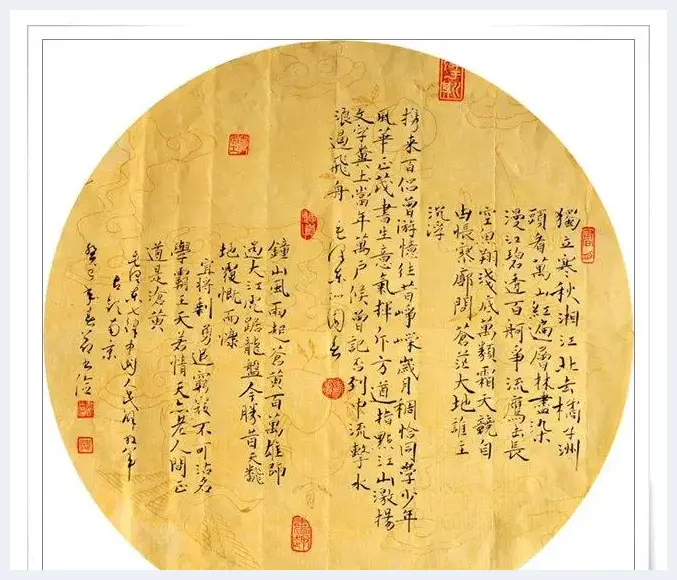 獨立寒秋湘江北去橘子洲
頭看萬山紅遍層林盡染
漫江碧透百舸爭流鷹击長
空魚翔淺底萬類霜天競自
由悵寥廓問蒼茫大地誰主
沉浮
携来百侣曾游憶往昔崢嶸歲月稠恰同學少年
風華正茂書生意氣揮斥方遒指點江山激揚
文字糞土當年萬戶侯曾記否到中流擊水
浪遏飛舟 毛澤東沁園春
鐘山風雨起蒼黄百萬雄師
過大江虎踞龍盤今勝昔天翻
地覆慨而慷
宜將剩勇追窮寇不可沽名
學霸王天若情天亦老人間正
道是滄黄
毛澤東七律中國人民解放軍
占領南京
癸巳年春